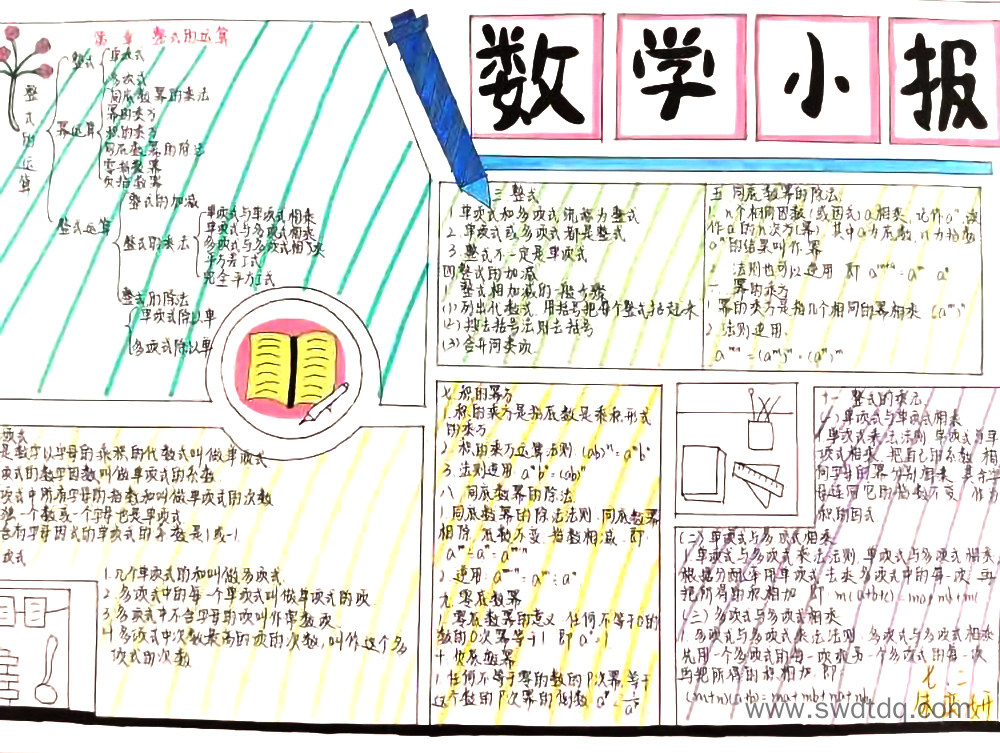 数学小报
第一章 整式的运算
整式的运算
整式
单项式
多项式
幂运算
同底数幂的乘法
幂的乘方
积的乘方
同底数幂的除法
零指数幂
负指数幂
整式运算
整式的加减
整式的乘法
单项式与单项式相乘
单项式与多项式相乘
多项式与多项式相乘
平方差公式
完全平方公式
整式的除法
单项式除以单
多项式除以单
三 整式
1 单项式和多项式统称为整式
2 单项式或多项式都是整式
3. 整式不一定是单项式
四 整式的加减
1 整式相加减的一般步骤
(1) 列出代数式 用括号把每个整式括起来
(2) 按去括号法则去括号
(3) 合并同类项
五 同底数幂的除法
1. n个相同因数(或因式)a相乘, 记作aⁿ, 读
作a的n次方(幂) 其中a为底数, n为指数
aⁿ的结果叫作幂
法则也可以逆用 即 aᵐ⁺ⁿ=aᵐ aⁿ
一 幂的乘方
1 幂的乘方是指几个相同的幂相乘 (aᵐ)ⁿ
2 法则逆用
aᵐⁿ=(aᵐ)ⁿ=(aⁿ)ᵐ
项式
是数字以字母的乘积的代数式叫做单项式
项式的数字因数叫做单项式的系数
项式中所有字母的指数和叫做单项式的次数
独一个数或一个字母也是单项式
含有字母因式的单项式的系数是1或-1.
项式
1. 几个单项式的和叫做多项式
2. 多项式中的每一个单项式叫做单项式的项
3. 多项式中不含字母的项叫作常数项
叫多项式中次数最高的项的次数, 叫作这个多
项式的次数
七 积的幂方
1. 积的乘方是指底数是乘积形式
的乘方
2. 积的乘方运算法则 (ab)ⁿ=aⁿbⁿ
3. 法则逆用 aⁿbⁿ=(ab)ⁿ
八 同底数幂的除法
1 同底数幂的除法法则 同底数幂
相除, 底数不变, 指数相减 即
aᵐ÷aⁿ=aᵐ⁻ⁿ
2. 逆用 aᵐ⁻ⁿ=aᵐ÷aⁿ
九 零底数幂
1. 零底数幂的意义 任何不等于0的
数的0次幂等于1 即a⁰=1
十 负底数幂
1. 任何不等于零的数的P次幂, 等于
这个数的P次幂的倒数
十一 整式的乘法
(一) 单项式与单项式相乘
1 单项式乘法法则 单项式与单
项式相乘, 把自己的系数 相
同字母的幂分别相乘, 其余字
母连同它的指数不变 作为
积的因式
(二) 单项式与多项式相乘
1 单项式与多项式乘法法则 单项式与多项式相乘
根据分配率用单项式去乘多项式中的每一项, 再
把所得的积相加 即: m(a+b+c)=ma+mb+mc
(三) 多项式与多项式相乘
1. 多项式与多项式乘法法则: 多项式与多项式相乘
先用一个多项式的每一项乘另一个多项式的每一项
再把所得的积相加, 即
(m+n)(a+b)=ma+mb+na+nb
七. 二
www.swdtdq.com